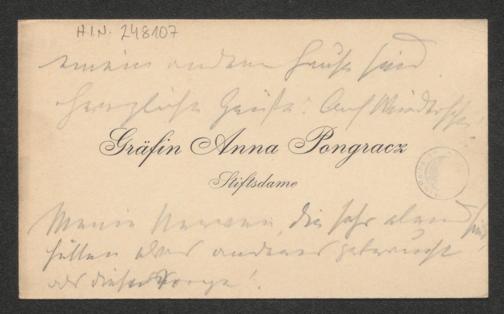 H.I.N. 248107
einem andern Hause sind.
Herzliche Grüße! Auf Wiedersehen
Gräfin Anna Pongracz
Stiftsdame
Meine Nerven, die sehr elend sind,
hätten aber anderes gebraucht
als diese Sorge!